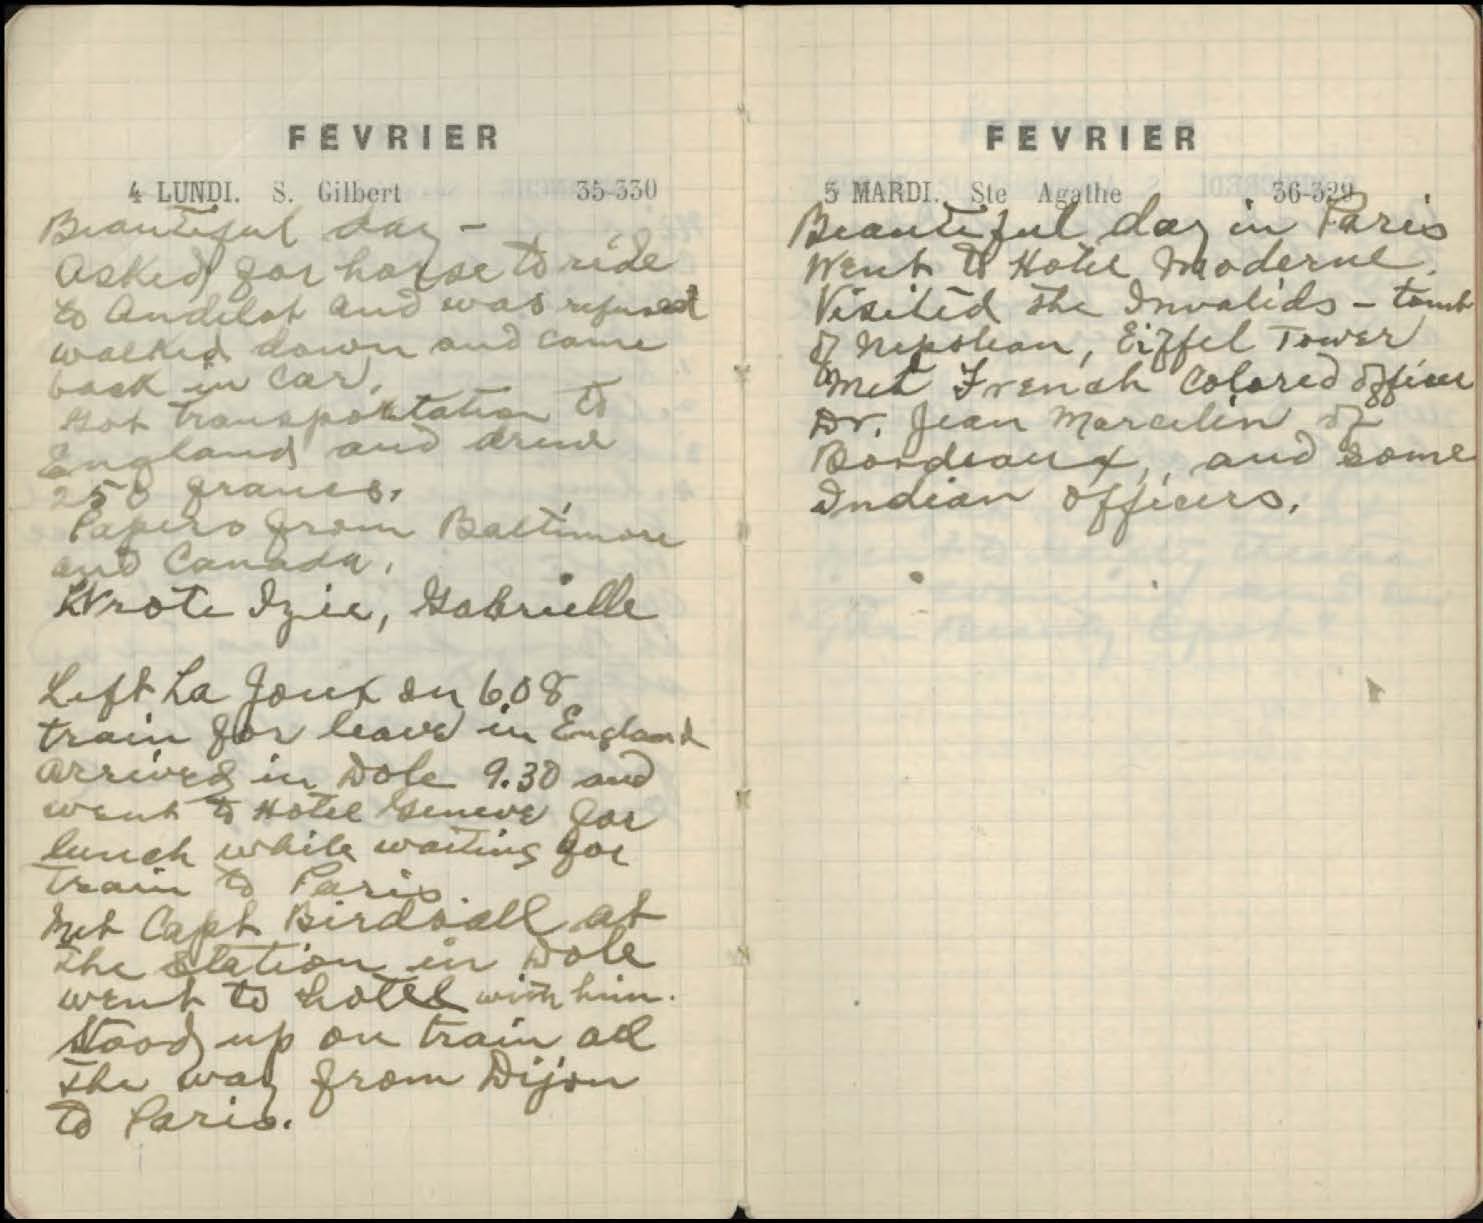 FEVRIER
4 LUNDI. S. Gilbert 35-330
Beautiful day -
Asked for horse to ride
to Andelot and was refused
walked down and came
back in car.
Got transportation to
England and drew
250 francs.
Papers from Baltimore
and Canada.
Wrote Izie, Gabrielle
Left La Joux on 6.08
train for leave in England
arrived in Dole 9.30 and
went to Hotel Geneve for
lunch while waiting for
train to Paris.
Met Capt Birdsall at
the station in Dole
went to hotel with him.
Stood up on train all
the way from Dijon
to Paris.
FEVRIER
5 MARDI. Ste Agathe 36-329
Beautiful day in Paris
Went to Hotel Moderne.
Visited the Invalids - tomb
of Nepolean, Eiffel Tower
Met French Colored officer
Dr. Jean Marcelin of
Bordeaux, and some
Indian officers.